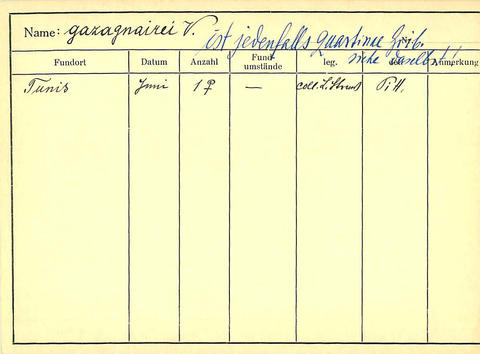 Name: gazagnairei V. ist jedenfalls Quartinia Grib.
siehe daselbst!!
Fundort Datum Anzahl Fund- umstände leg. det. Anmerkung
Tunis Juni 1 ♀ — coll. P. H.